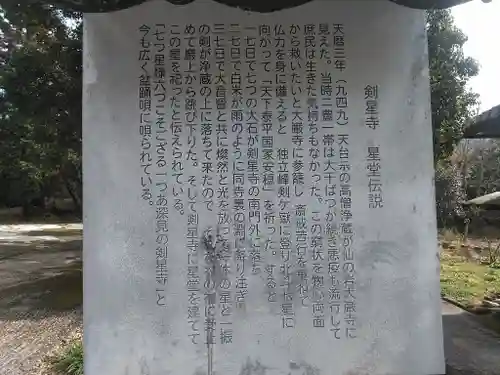 剣星寺 星堂伝説
天暦三年（九四九）天台宗の高僧浄蔵が仙の岩大厳寺に
見えた。当時三重一帯は大干ばつが続き悪疫も流行して
庶民は生きた気持ちもなかった。この窮状を
から救いたいと大厳寺に参籠し 斎戒苦行を重ねて
仏力を身に備えると 独立峰剣ケ嶽に登り北斗七星に
向かって「天下泰平国家安穏」を祈った。すると
一七日で七つの大石が剣星寺の南門外に落ち
二七日で白米が雨のように同寺裏の淵に降り注ぎ
三七日で大音響と共に燦然と光を放つ七体の星と一振
の剣が浄蔵の上に落ちて来たので
めて巌上から跳び下りた。そして剣星寺に星堂を建てて
この星を祀ったと伝えられている。
「七つ星様六つこそござる 一つあ深見の剣星寺」と
今も広く盆踊唄に唄られている。